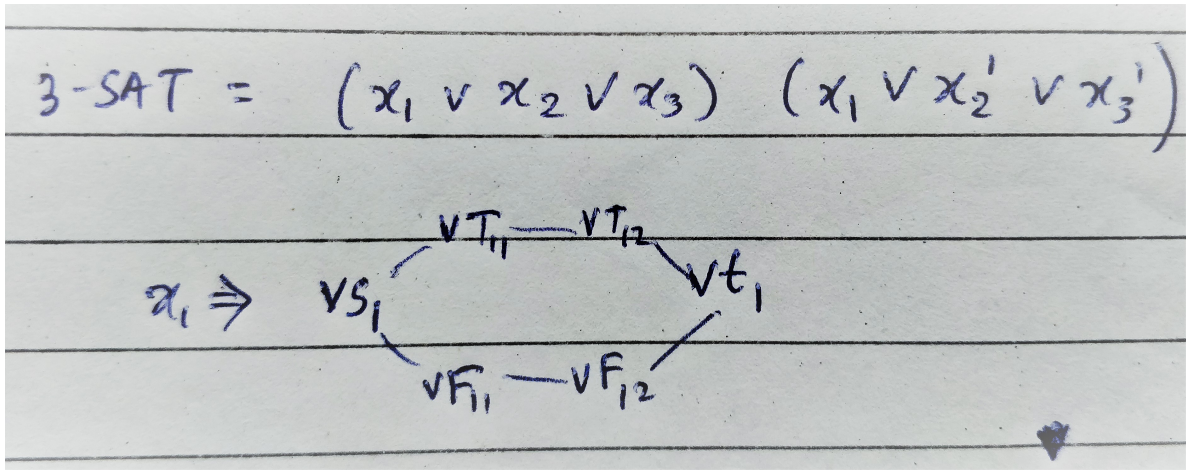 3-SAT = (x₁ ∨ x₂ ∨ x₃) (x₁ ∨ x₂' ∨ x₃')
vT₁₁ — vT₁₂
x₁ ⇒ vs₁ vt₁
vF₁₁ — vF₁₂